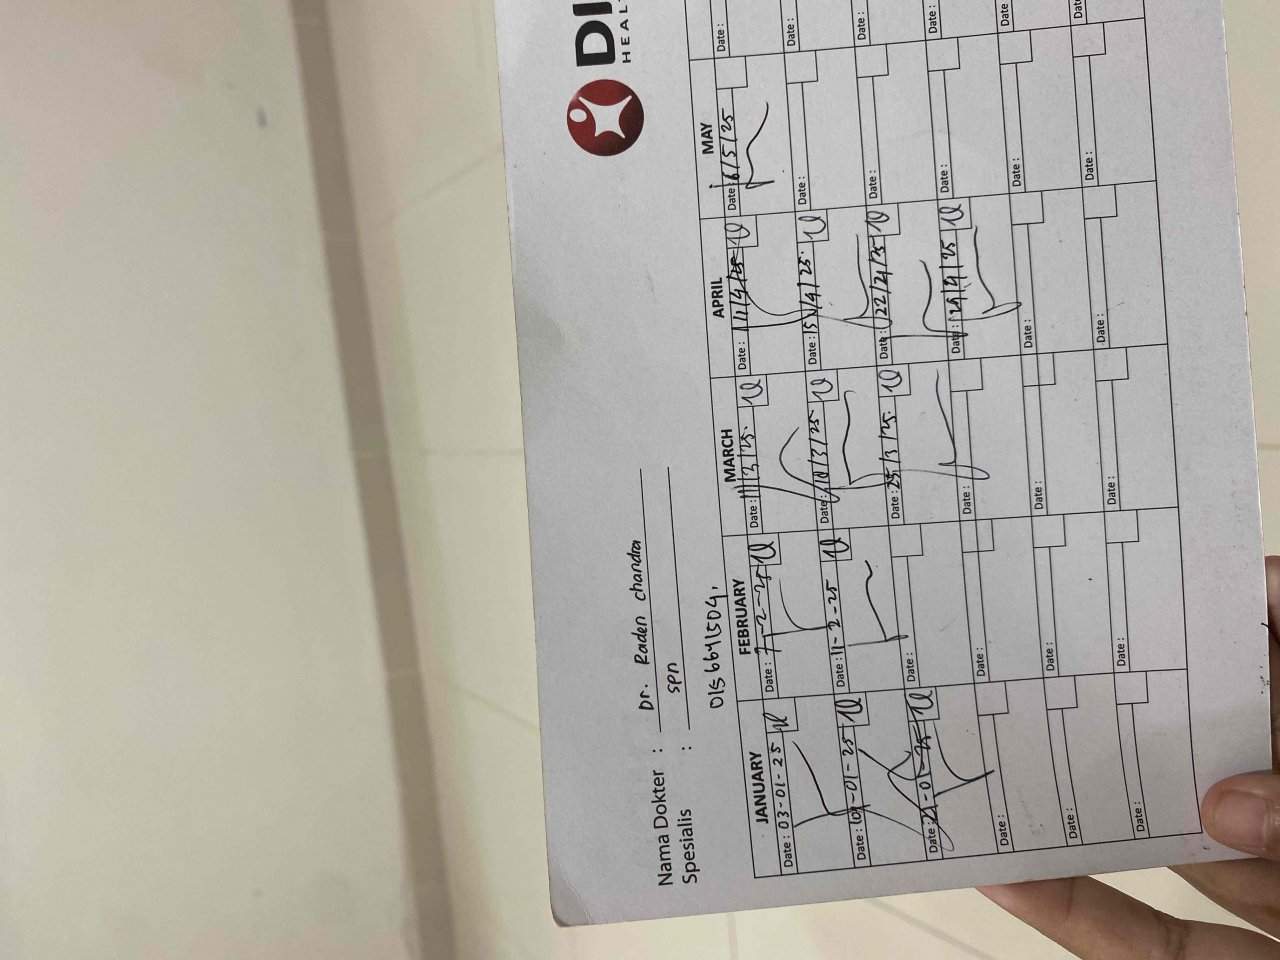 DI
HEAL
Nama Dokter : Dr. Raden chandra
Spesialis : spn
JANUARY FEBRUARY MARCH APRIL MAY
Date : 03-01-25 Date : 7-2-25 Date : 11/3/25. Date : 11/4/25 Date : 6/5/25 Date :
Date : Date : 11-2-25 Date : 18/3/25 Date : 15/4/25. Date : Date :
Date : 21-01-25 Date : Date : 25/3/25. Date : 22/4/25 Date : Date :
Date : Date : Date : Date : 29/4/25 Date : Date :
Date : Date : Date : Date : Date : Date :
Date : Date : Date : Date : Date : Date :